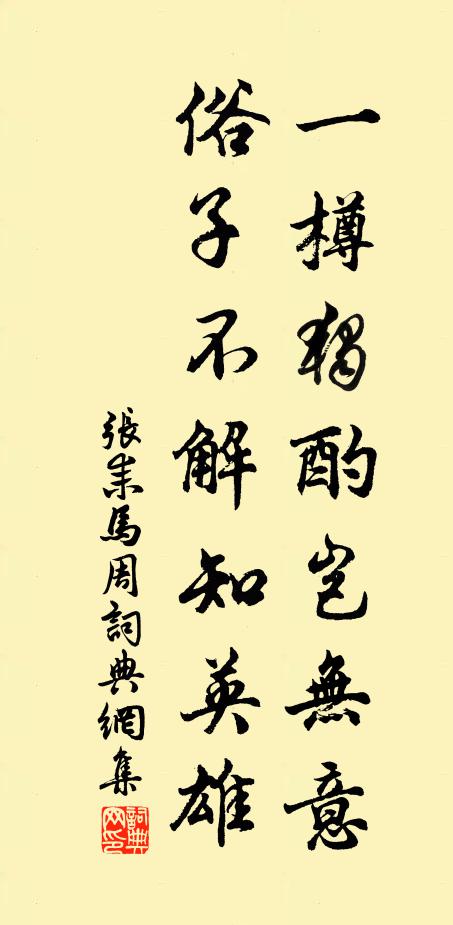 一樽獨酌豈無意
俗子不解知英雄
張耒馬周詞典網集
詞典網印